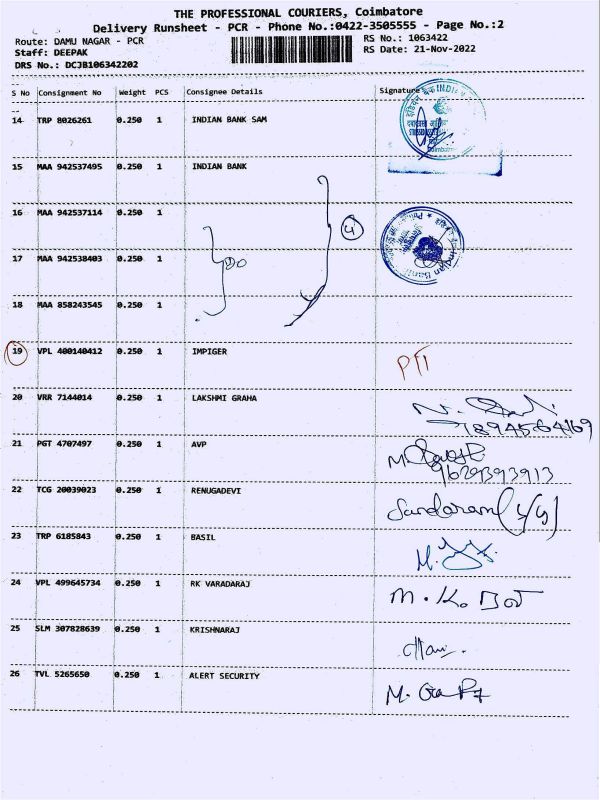 THE PROFESSIONAL COURIERS, Coimbatore
Delivery Runsheet - PCR - Phone No.:0422-3505555 - Page No.:2
Route: DAMU NAGAR - PCR RS No.: 1063422
Staff: DEEPAK RS Date: 21-Nov-2022
DRS No.: DCJB106342202
S No Consignment No Weight PCS Consignee Details Signature
14 TRP 8026261 0.250 1 INDIAN BANK SAM
15 MAA 942537495 0.250 1 INDIAN BANK
16 MAA 942537114 0.250 1
17 MAA 942538403 0.250 1
18 MAA 858243545 0.250 1
19 VPL 400140412 0.250 1 IMPIGER
20 VRR 7144014 0.250 1 LAKSHMI GRAHA
7894564169
21 PGT 4707497 0.250 1 AVP
9629393913
22 TCG 20039023 0.250 1 RENUGADEVI Sundaram
23 TRP 6185843 0.250 1 BASIL
24 VPL 499645734 0.250 1 RK VARADARAJ
25 SLM 307828639 0.250 1 KRISHNARAJ
26 TVL 5265650 0.250 1 ALERT SECURITY